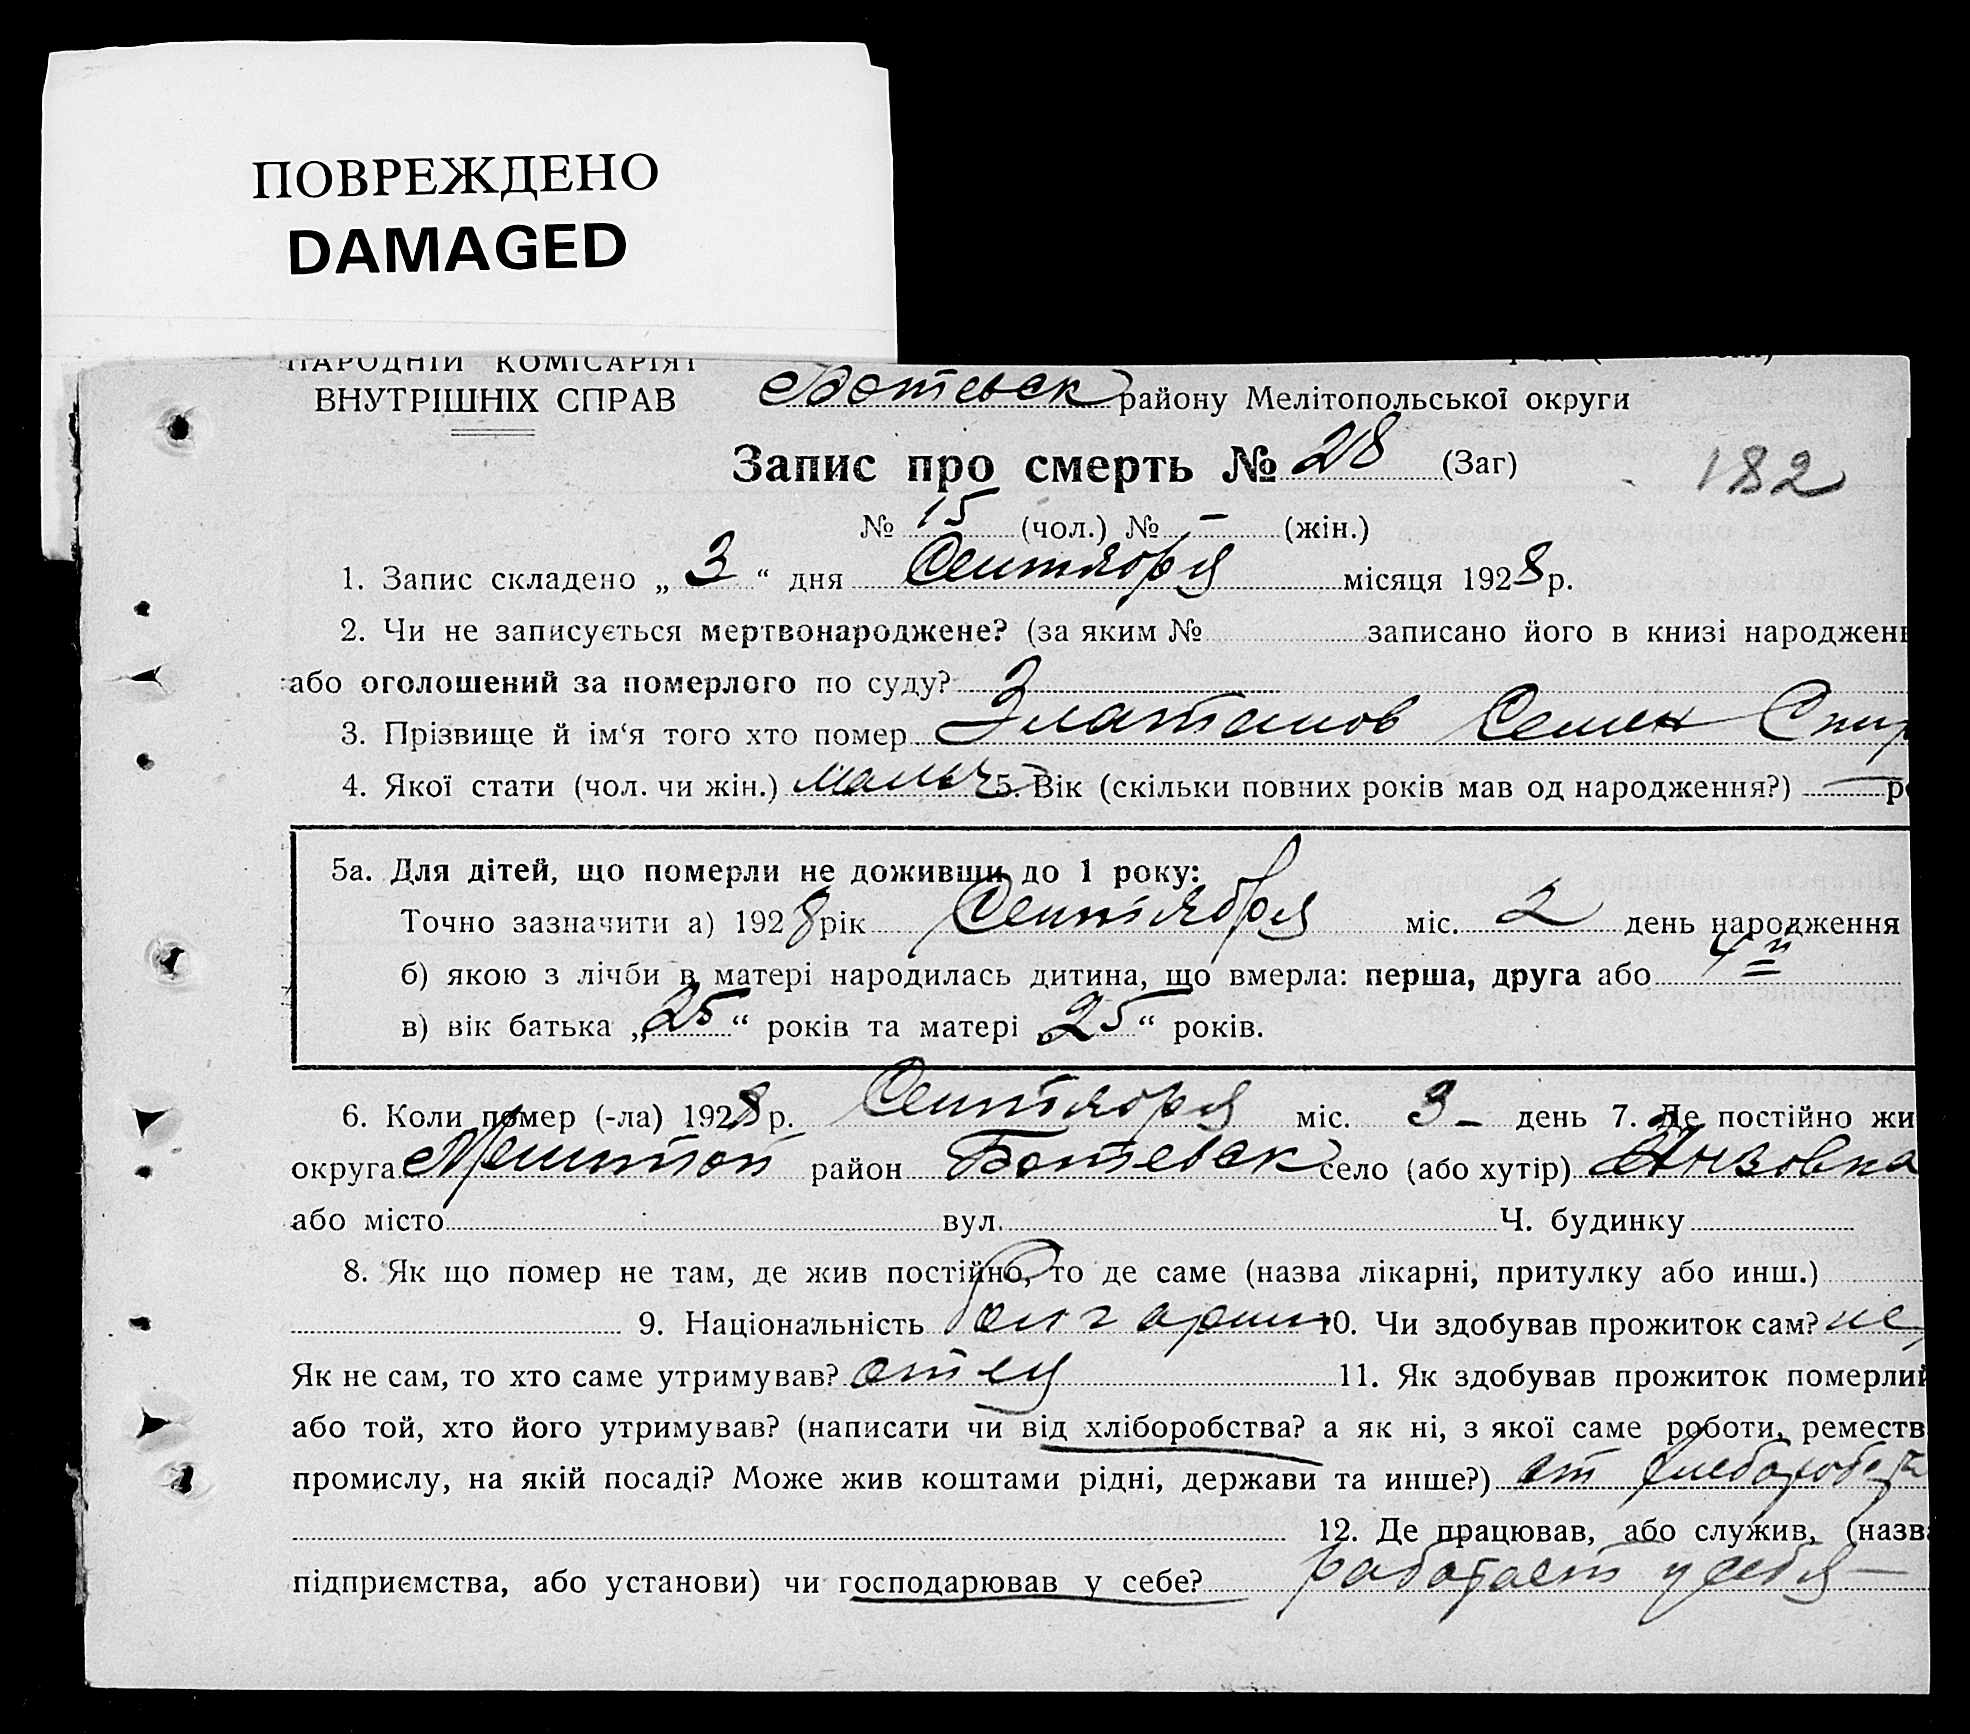 ПОВРЕЖДЕНО
DAMAGED
НАРОДНІЙ КОМІСАРІЯТ
ВНУТРІШНІХ СПРАВ
Ботевск району Мелітопольської округи
Запис про смерть № 28 (Заг)
182
№ 15 (чол.) № – (жін.)
1. Запис складено „ 3 “ дня Сентября місяця 1928 р.
2. Чи не записується мертвонароджене? (за яким № записано його в книзі народжень
або оголошений за померлого по суду?
3. Прізвище й ім‘я того хто помер Златанов Семен Спир
4. Якої стати (чол. чи жін.) мальч 5. Вік (скільки повних років мав од народження?) — р
5а. Для дітей, що померли не доживши до 1 року:
Точно зазначити а) 1928 рік Сентября міс. 2 день народження
б) якою з лічби в матері народилась дитина, що вмерла: перша, друга або 4й
в) вік батька „25“ років та матері „25“ років.
6. Коли помер (-ла) 1928 р. Сентября міс. 3 – день 7. Де постійно жи
округа Мелитоп район Ботевск село (або хутір)
або місто вул. Ч. будинку
8. Як що помер не там, де жив постійно, то де саме (назва лікарні, притулку або инш.)
9. Національність болгарин 10. Чи здобував прожиток сам? не
Як не сам, то хто саме утримував? отец 11. Як здобував прожиток померлий
або той, хто його утримував? (написати чи від хліборобства? а як ні, з якої саме роботи, реместв
промислу, на якій посаді? Може жив коштами рідні, держави та инше?) от
12. Де працював, або служив, (назва
підприємства, або установи) чи господарював у себе? работает у себя —